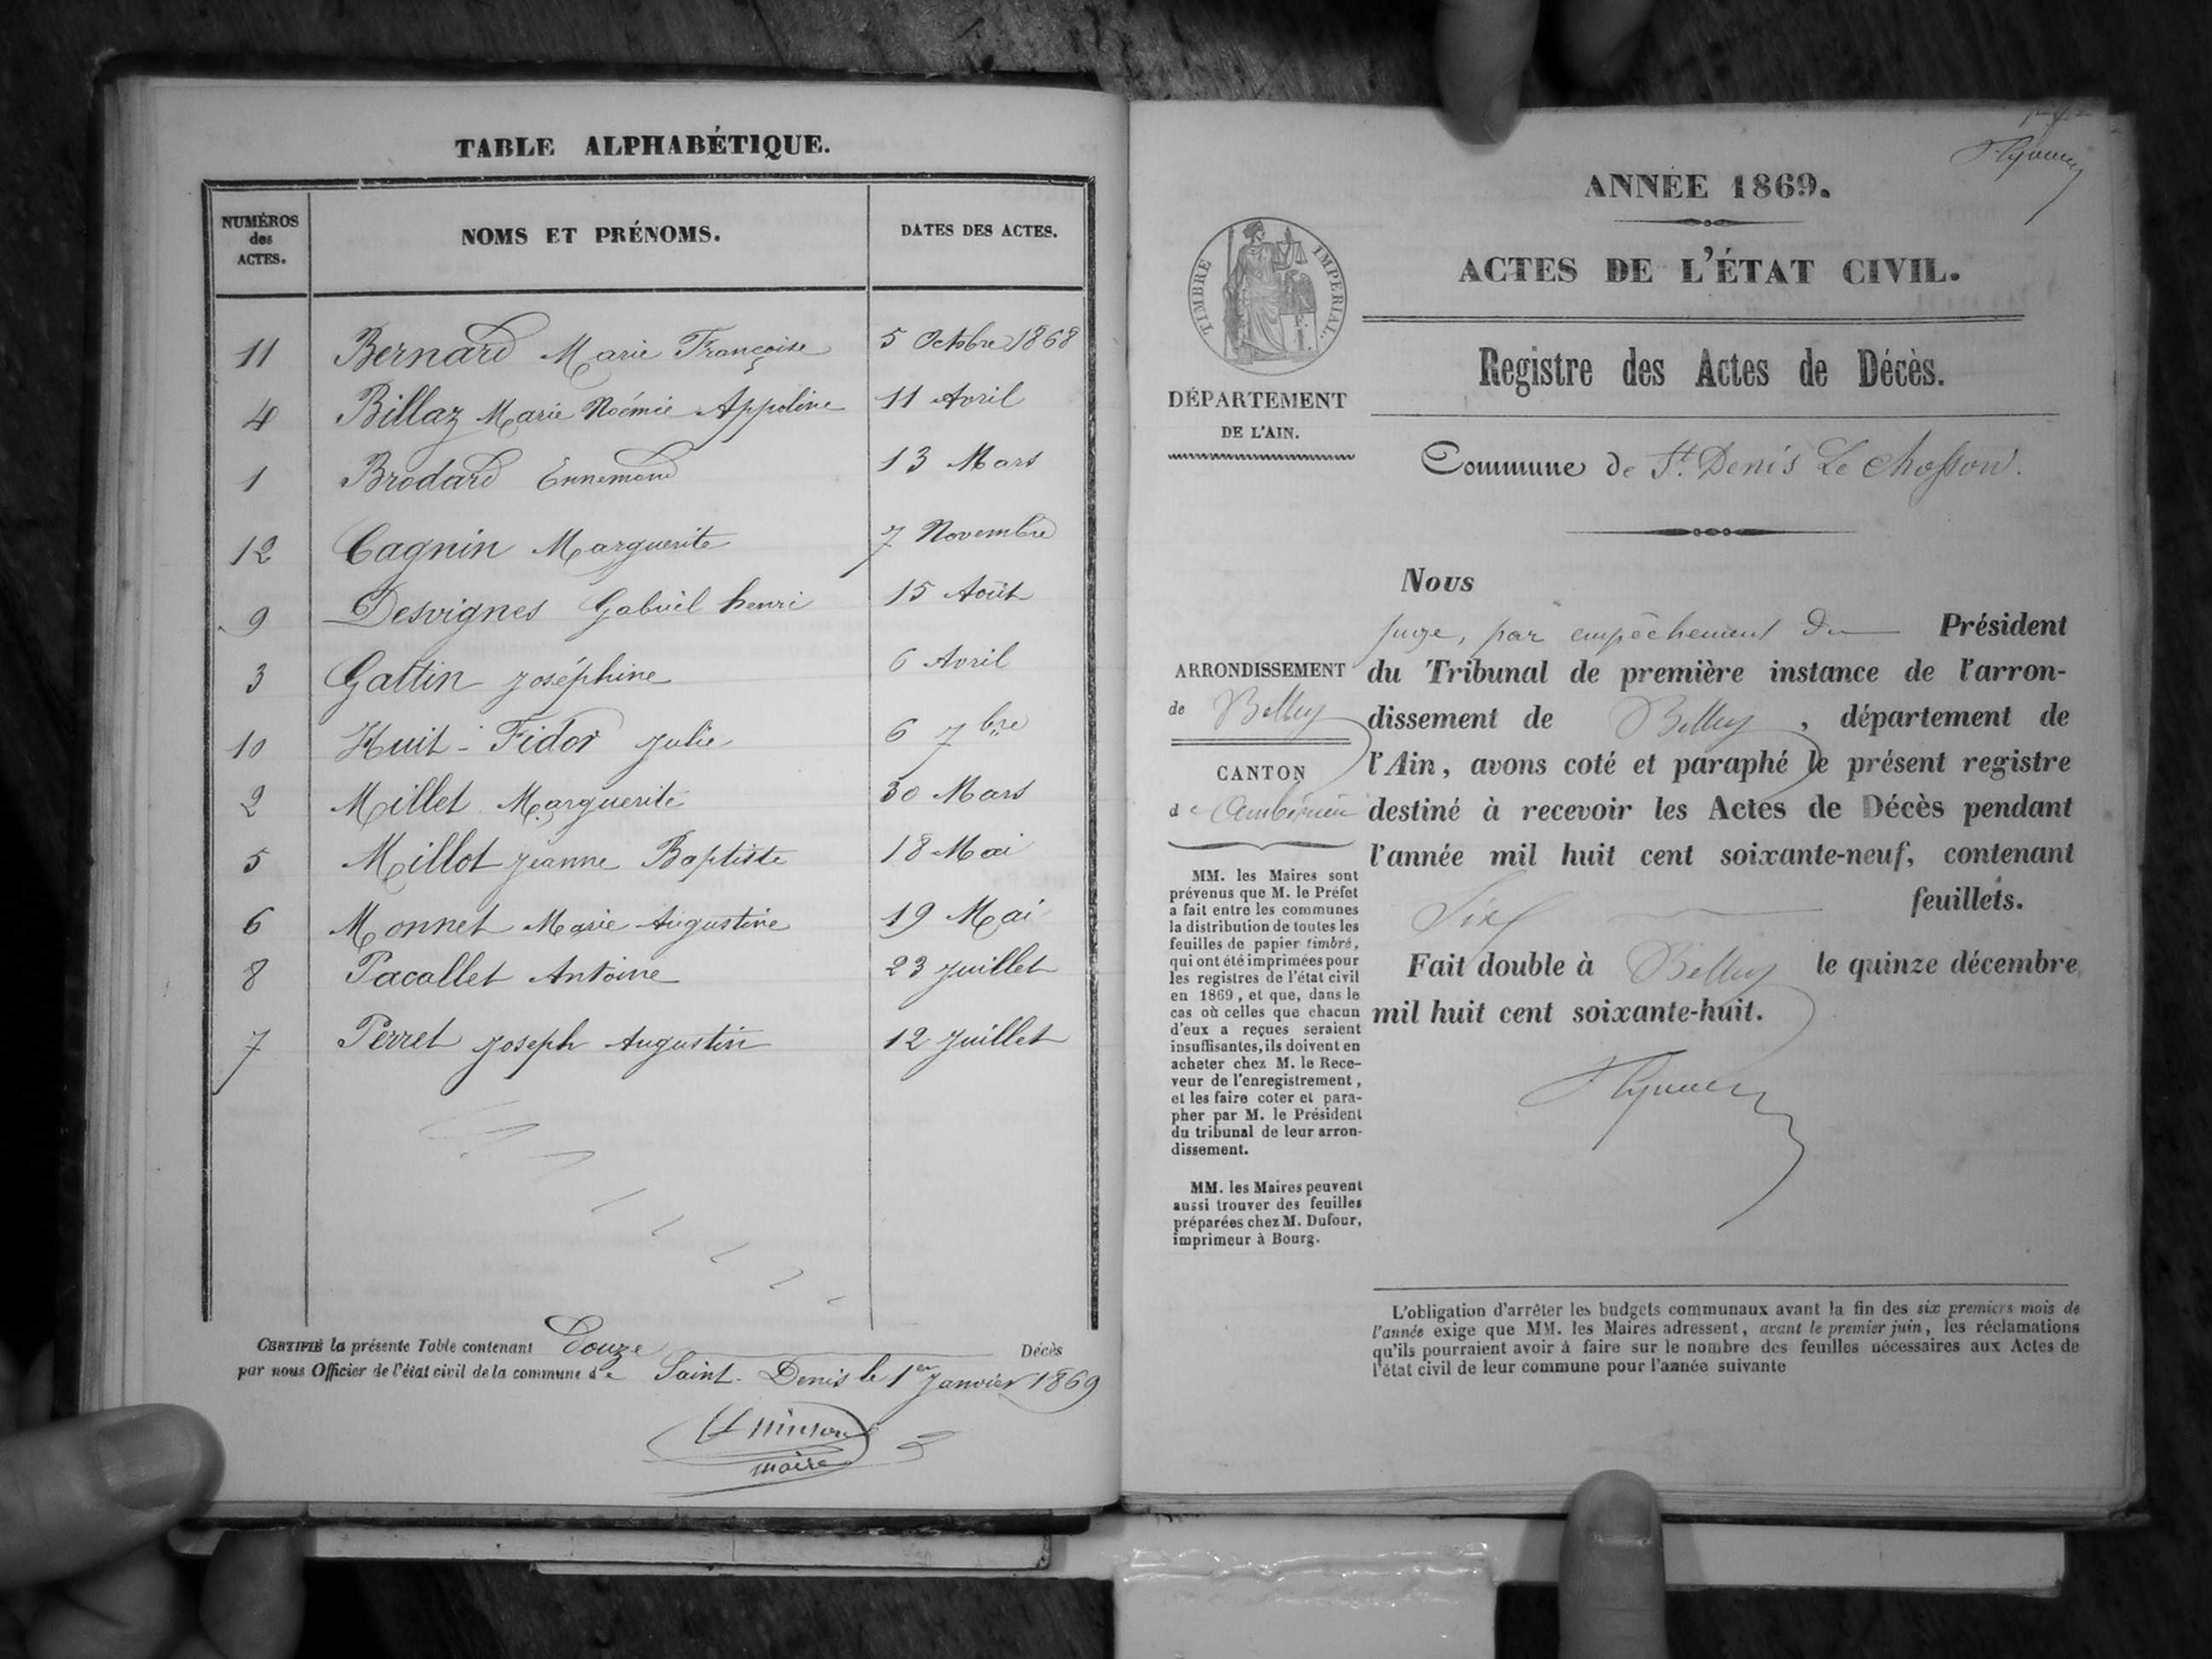 TABLE ALPHABÉTIQUE.
NUMÉROS des ACTES. NOMS ET PRÉNOMS. DATES DES ACTES.
11 Bernard Marie Françoise 5 Octobre 1868
4 Billaz Marie Noémie Appoline 11 Avril
1 Brodard Ennemond 13 Mars
12 Cagnin Marguerite 7 Novembre
9 Desvignes Gabriel henri 15 Août
3 Gattin joséphine 6 Avril
10 Huit-Fidor julie 6 7bre
2 Millet Marguerite 30 Mars
5 Millot jeanne Baptiste 18 Mai
6 Monnet Marie Augustine 19 Mai
8 Pacallet Antoine 23 juillet
7 Perret joseph Augustin 12 juillet
CERTIFIÉ la présente Table contenant Douze Décès
par nous Officier de l'état civil de la commune de Saint-Denis le 1er Janvier 1869
maire
ANNÉE 1869.
ACTES DE L'ÉTAT CIVIL.
TIMBRE IMPERIAL.
Registre des Actes de Décès.
DÉPARTEMENT
DE L'AIN.
Commune de St. Denis Le Chosson.
ARRONDISSEMENT
de Belley
CANTON
de Ambérieu
MM. les Maires sont
prévenus que M. le Préfet
a fait entre les communes
la distribution de toutes les
feuilles de papier timbré,
qui ont été imprimées pour
les registres de l'état civil
en 1869, et que, dans le
cas où celles que chacun
d'eux a reçues seraient
insuffisantes, ils doivent en
acheter chez M. le Rece-
veur de l'enregistrement,
et les faire coter et para-
pher par M. le Président
du tribunal de leur arron-
dissement.
MM. les Maires peuvent
aussi trouver des feuilles
préparées chez M. Dufour,
imprimeur à Bourg.
Nous
juge, par empêchement du Président
du Tribunal de première instance de l'arron-
dissement de Belley, département de
l'Ain, avons coté et paraphé le présent registre
destiné à recevoir les Actes de Décès pendant
l'année mil huit cent soixante-neuf, contenant
Six feuillets.
Fait double à Belley le quinze décembre
mil huit cent soixante-huit.
L'obligation d'arrêter les budgets communaux avant la fin des six premiers mois de
l'année exige que MM. les Maires adressent, avant le premier juin, les réclamations
qu'ils pourraient avoir à faire sur le nombre des feuilles nécessaires aux Actes de
l'état civil de leur commune pour l'année suivante